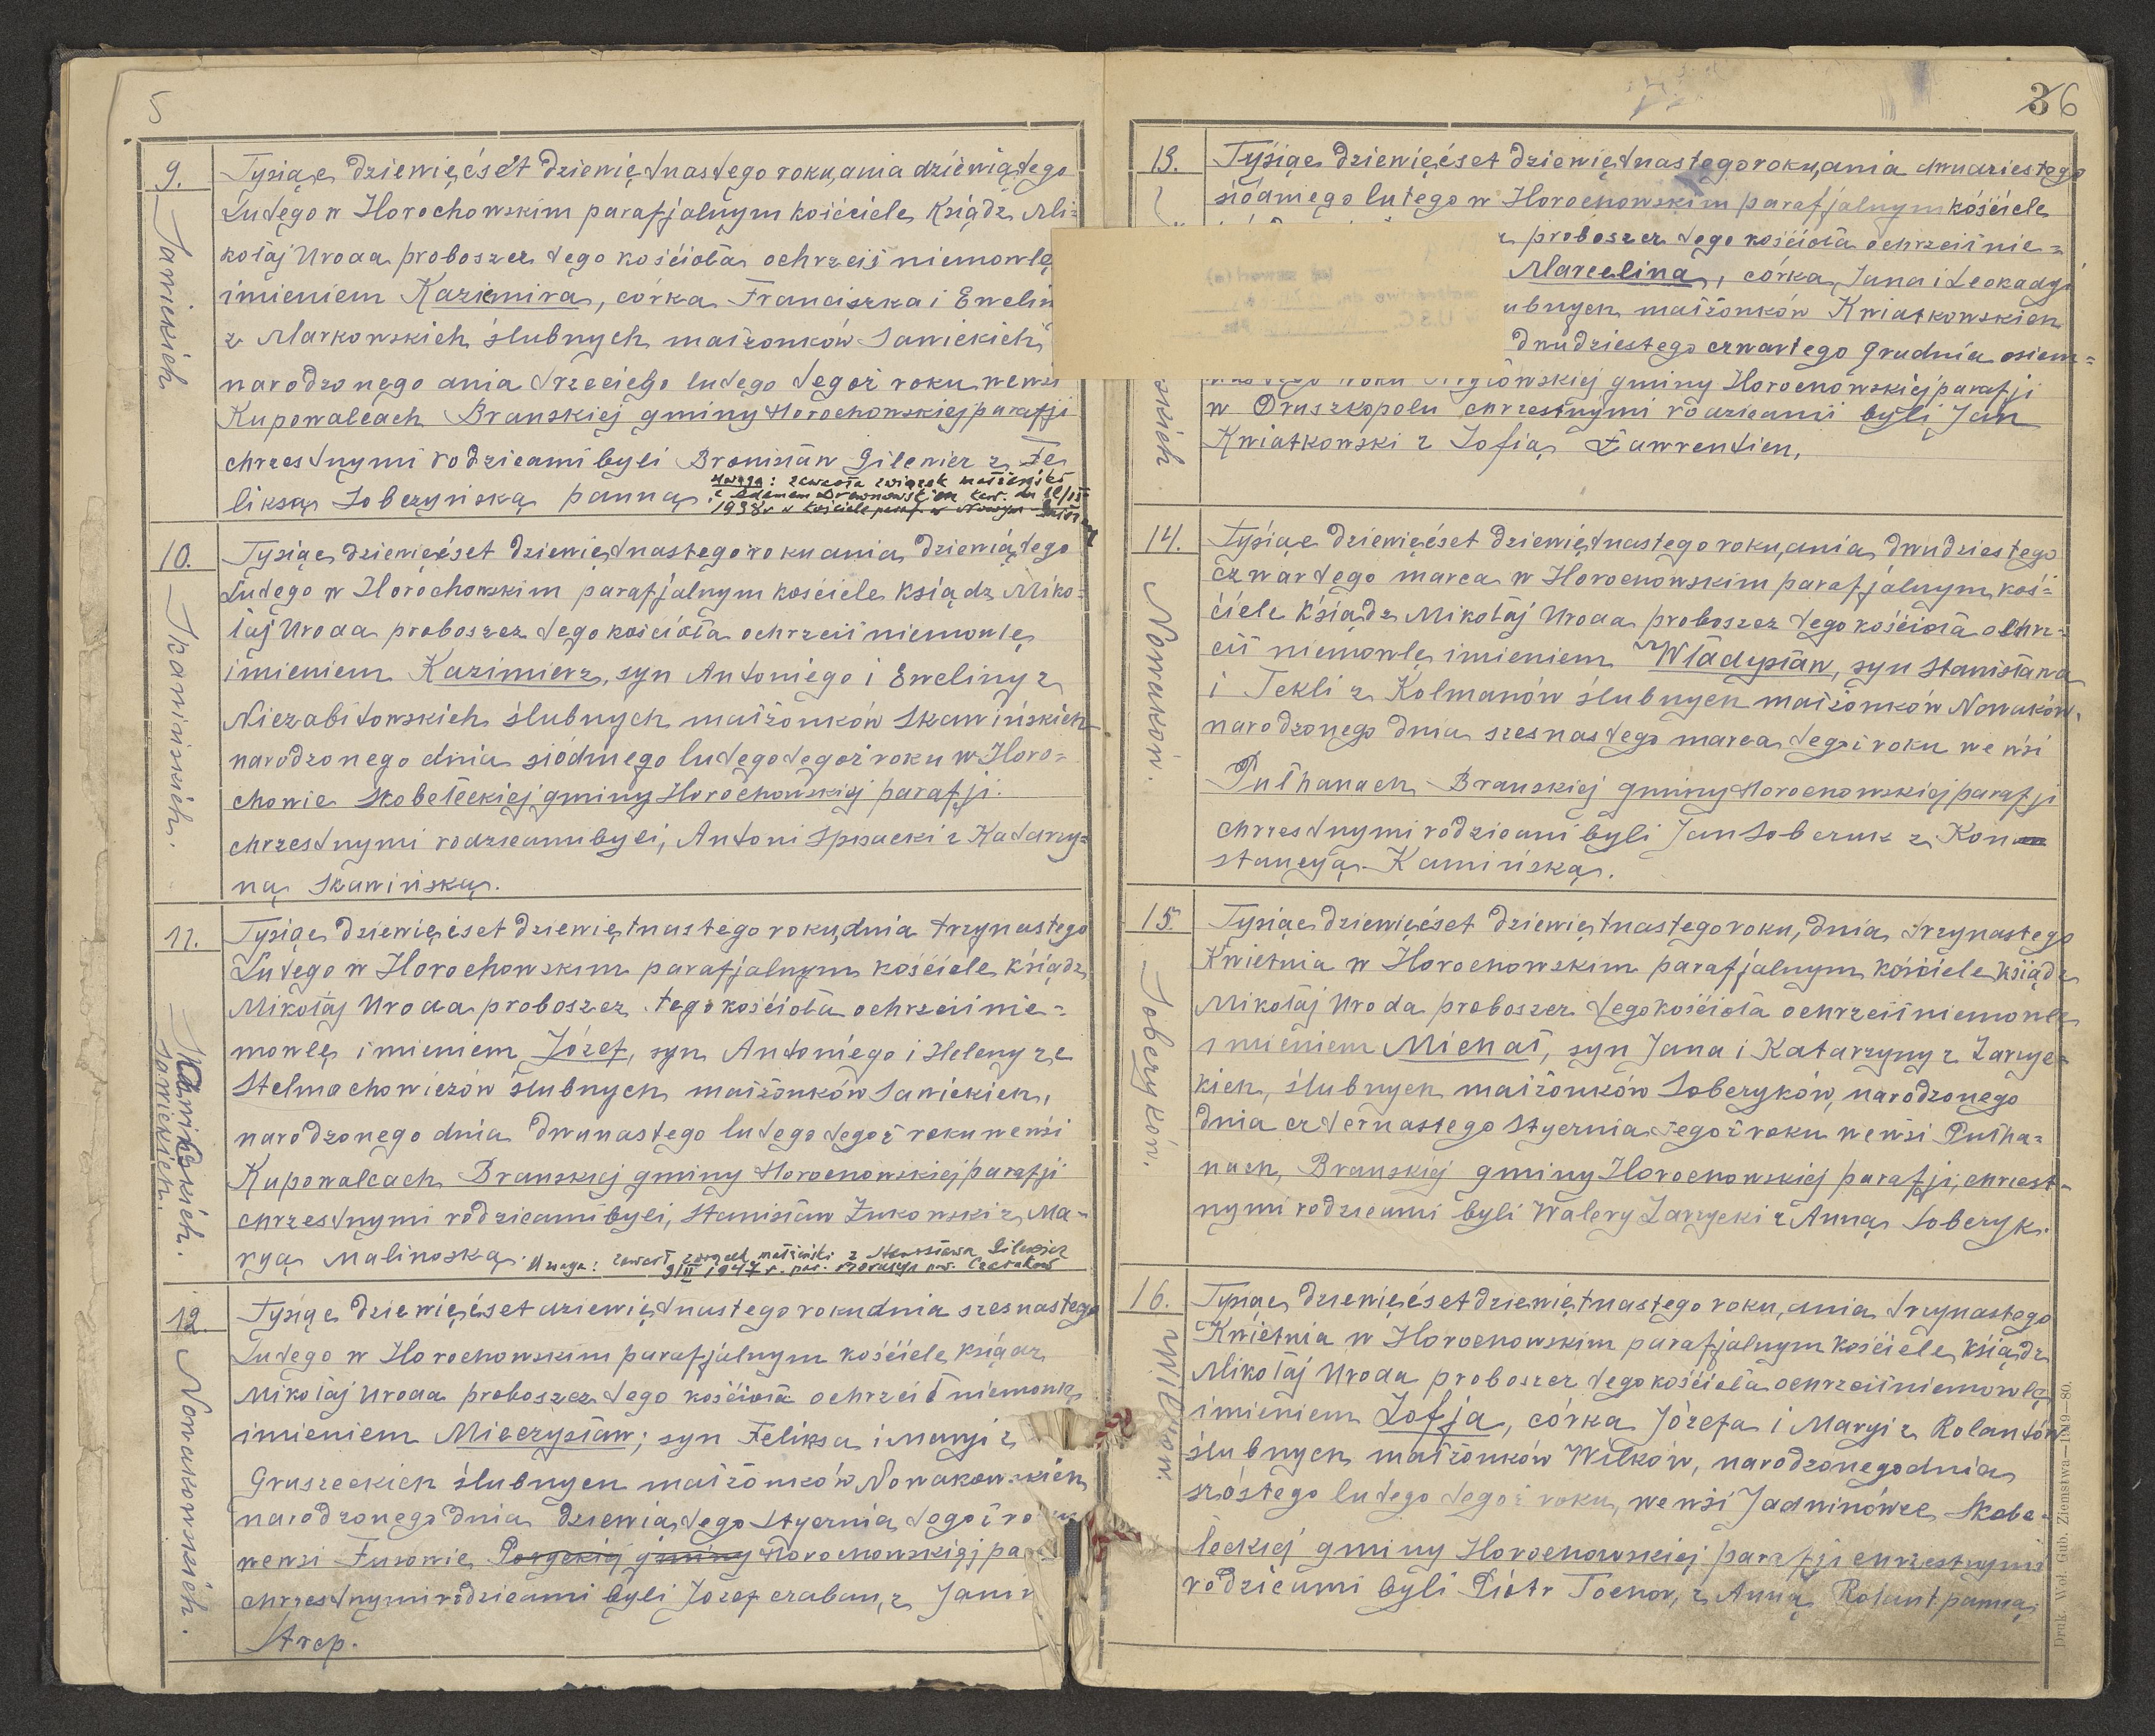 9.
Sawickich
Tysiąc dziewięćset dziewiętnastego roku, dnia dziewiątego
Lutego w Horochowskim parafjalnym kościele Ksiądz Mi=
kołaj Uroda proboszcz tego kościoła ochrzcił niemowlę
imieniem Kazimira, córka Franciszka i Ewelin
z Markowskich ślubnych małżonków Sawickich
narodzonego dnia trzeciego lutego tegoż roku we wsi
Kupowalcach Branskiej gminy Horochowskiej parafji
chrzestnymi rodzicami byli Bronisław Gilewicz z Fe
liksą Sobczyńską panną.
Uwaga: zawarła związek małżeński
z Adamem Drewnowskim kaw. dn
1938 r w kościele paraf. w Nowym
10.
Skawińskich.
Tysiąc dziewięćset dziewiętnastego roku dnia dziewiątego
Lutego w Horochowskim parafjalnym kościele Ksiądz Miko=
łaj Uroda proboszcz tego kościoła ochrzcił niemowlę
imieniem Kazimierz, syn Antoniego i Eweliny z
Niezabitowskich ślubnych małżonków Skawińskich
narodzonego dnia siódmego lutego tegoż roku w Horo=
chowie Skobełeckiej gminy Horochowskiej parafji.
chrzestnymi rodzicami byli, Antoni Spisacki z Katarzy=
ną Skawińską.
11.
Skawińskich.
Sawickich.
Tysiąc dziewięćset dziewiętnastego roku, dnia trzynastego
Lutego w Horochowskim parafjalnym kościele ksiądz
Mikołaj Uroda proboszcz tego kościoła ochrzcił nie=
mowlę imieniem Józef, syn Antoniego i Heleny ze
Stelmachowiczów ślubnych małżonków Sawickich,
narodzonego dnia dwunastego lutego tegoż roku we wsi
Kupowalcach Branskiej gminy Horochowskiej parafji
chrzestnymi rodzicami byli, Stanisław Żukowski z Ma-
ryą Malinoską.
Uwaga: zawarł związek małżeński z Stanisława Gilewicz
9/II 1947 r. par.
12.
Nowakowskich.
Tysiąc dziewięćset dziewiętnastego roku dnia szesnastego
Lutego w Horochowskim parafjalnym kościele ksiądz
Mikołaj Uroda proboszcz tego kościoła ochrzcił niemowlę
imieniem Mieczysław; syn Feliksa i Maryi z
Gruszeckich ślubnych małżonków Nowakowskich
narodzonego dnia dziewiątego Stycznia tegoż ro
we wsi Fusowie Poryckiej gminy Horochowskiej pa
chrzestnymi rodzicami byli Józef Czaban, z
Strep.
36
13.
skich
Tysiąc dziewięćset dziewiętnastego roku, dnia dwudziestego
siódmego lutego w Horochowskim parafjalnym kościele
z proboszcz tego kościoła ochrzcił nie=
Marcelina, córka Jana i Leokadyi
ubnych małżonków Kwiatkowskich
dwudziestego czwartego Grudnia osiem=
nastego roku gminy Horochowskiej parafji
w Druszkopolu chrzestnymi rodzicami byli Jan
Kwiatkowski z Zofią Ławrentien,
14.
Nowaków.
Tysiąc dziewięćset dziewiętnastego roku, dnia dwudziestego
czwartego marca w Horochowskim parafjalnym koś=
ciele Ksiądz Mikołaj Uroda proboszcz tego kościoła ochrz=
cił niemowlę imieniem Władysław, syn Stanisława
i Tekli z Kolmanów ślubnych małżonków Nowaków,
narodzonego dnia szesnastego marca tegoż roku we wsi
Pułhanach Branskiej gminy Horochowskiej parafji
chrzestnymi rodzicami byli Jan Soberuk z Kon
stancyją Kamińską.
15.
Soberyków.
Tysiąc dziewięćset dziewiętnastego roku, dnia trzynastego
Kwietnia w Horochowskim parafjalnym kościele ksiądz
Mikołaj Uroda proboszcz tego kościoła ochrzcił niemowlę
imieniem Michał, syn Jana i Katarzyny z Zarzyc=
kich, ślubnych małżonków Soberyków, narodzonego
dnia czternastego Stycznia tegoż roku we wsi Pułha=
nach, Branskiej gminy Horochowskiej parafji, chrzest-
nymi rodzicami byli Walery Zarzycki z Anną Soberyk.
16.
Wilków.
Tysiąc dziewięćset dziewiętnastego roku, dnia trzynastego
Kwietnia w Horochowskim parafjalnym kościele ksiądz
Mikołaj Uroda proboszcz tego kościoła ochrzcił niemowlę
imieniem Zofja, córka Józefa i Maryi z Rolantów
ślubnych małżonków Wilków, narodzonego dnia
szóstego lutego tegoż roku, we wsi Jadwinówce Skobe=
łeckiej gminy Horochowskiej parafji chrzestnymi
rodzicami byli Piotr Tochor, z Anną Rolant panną.
Druk. Woł. Gub. Ziemstwa—1919—80.